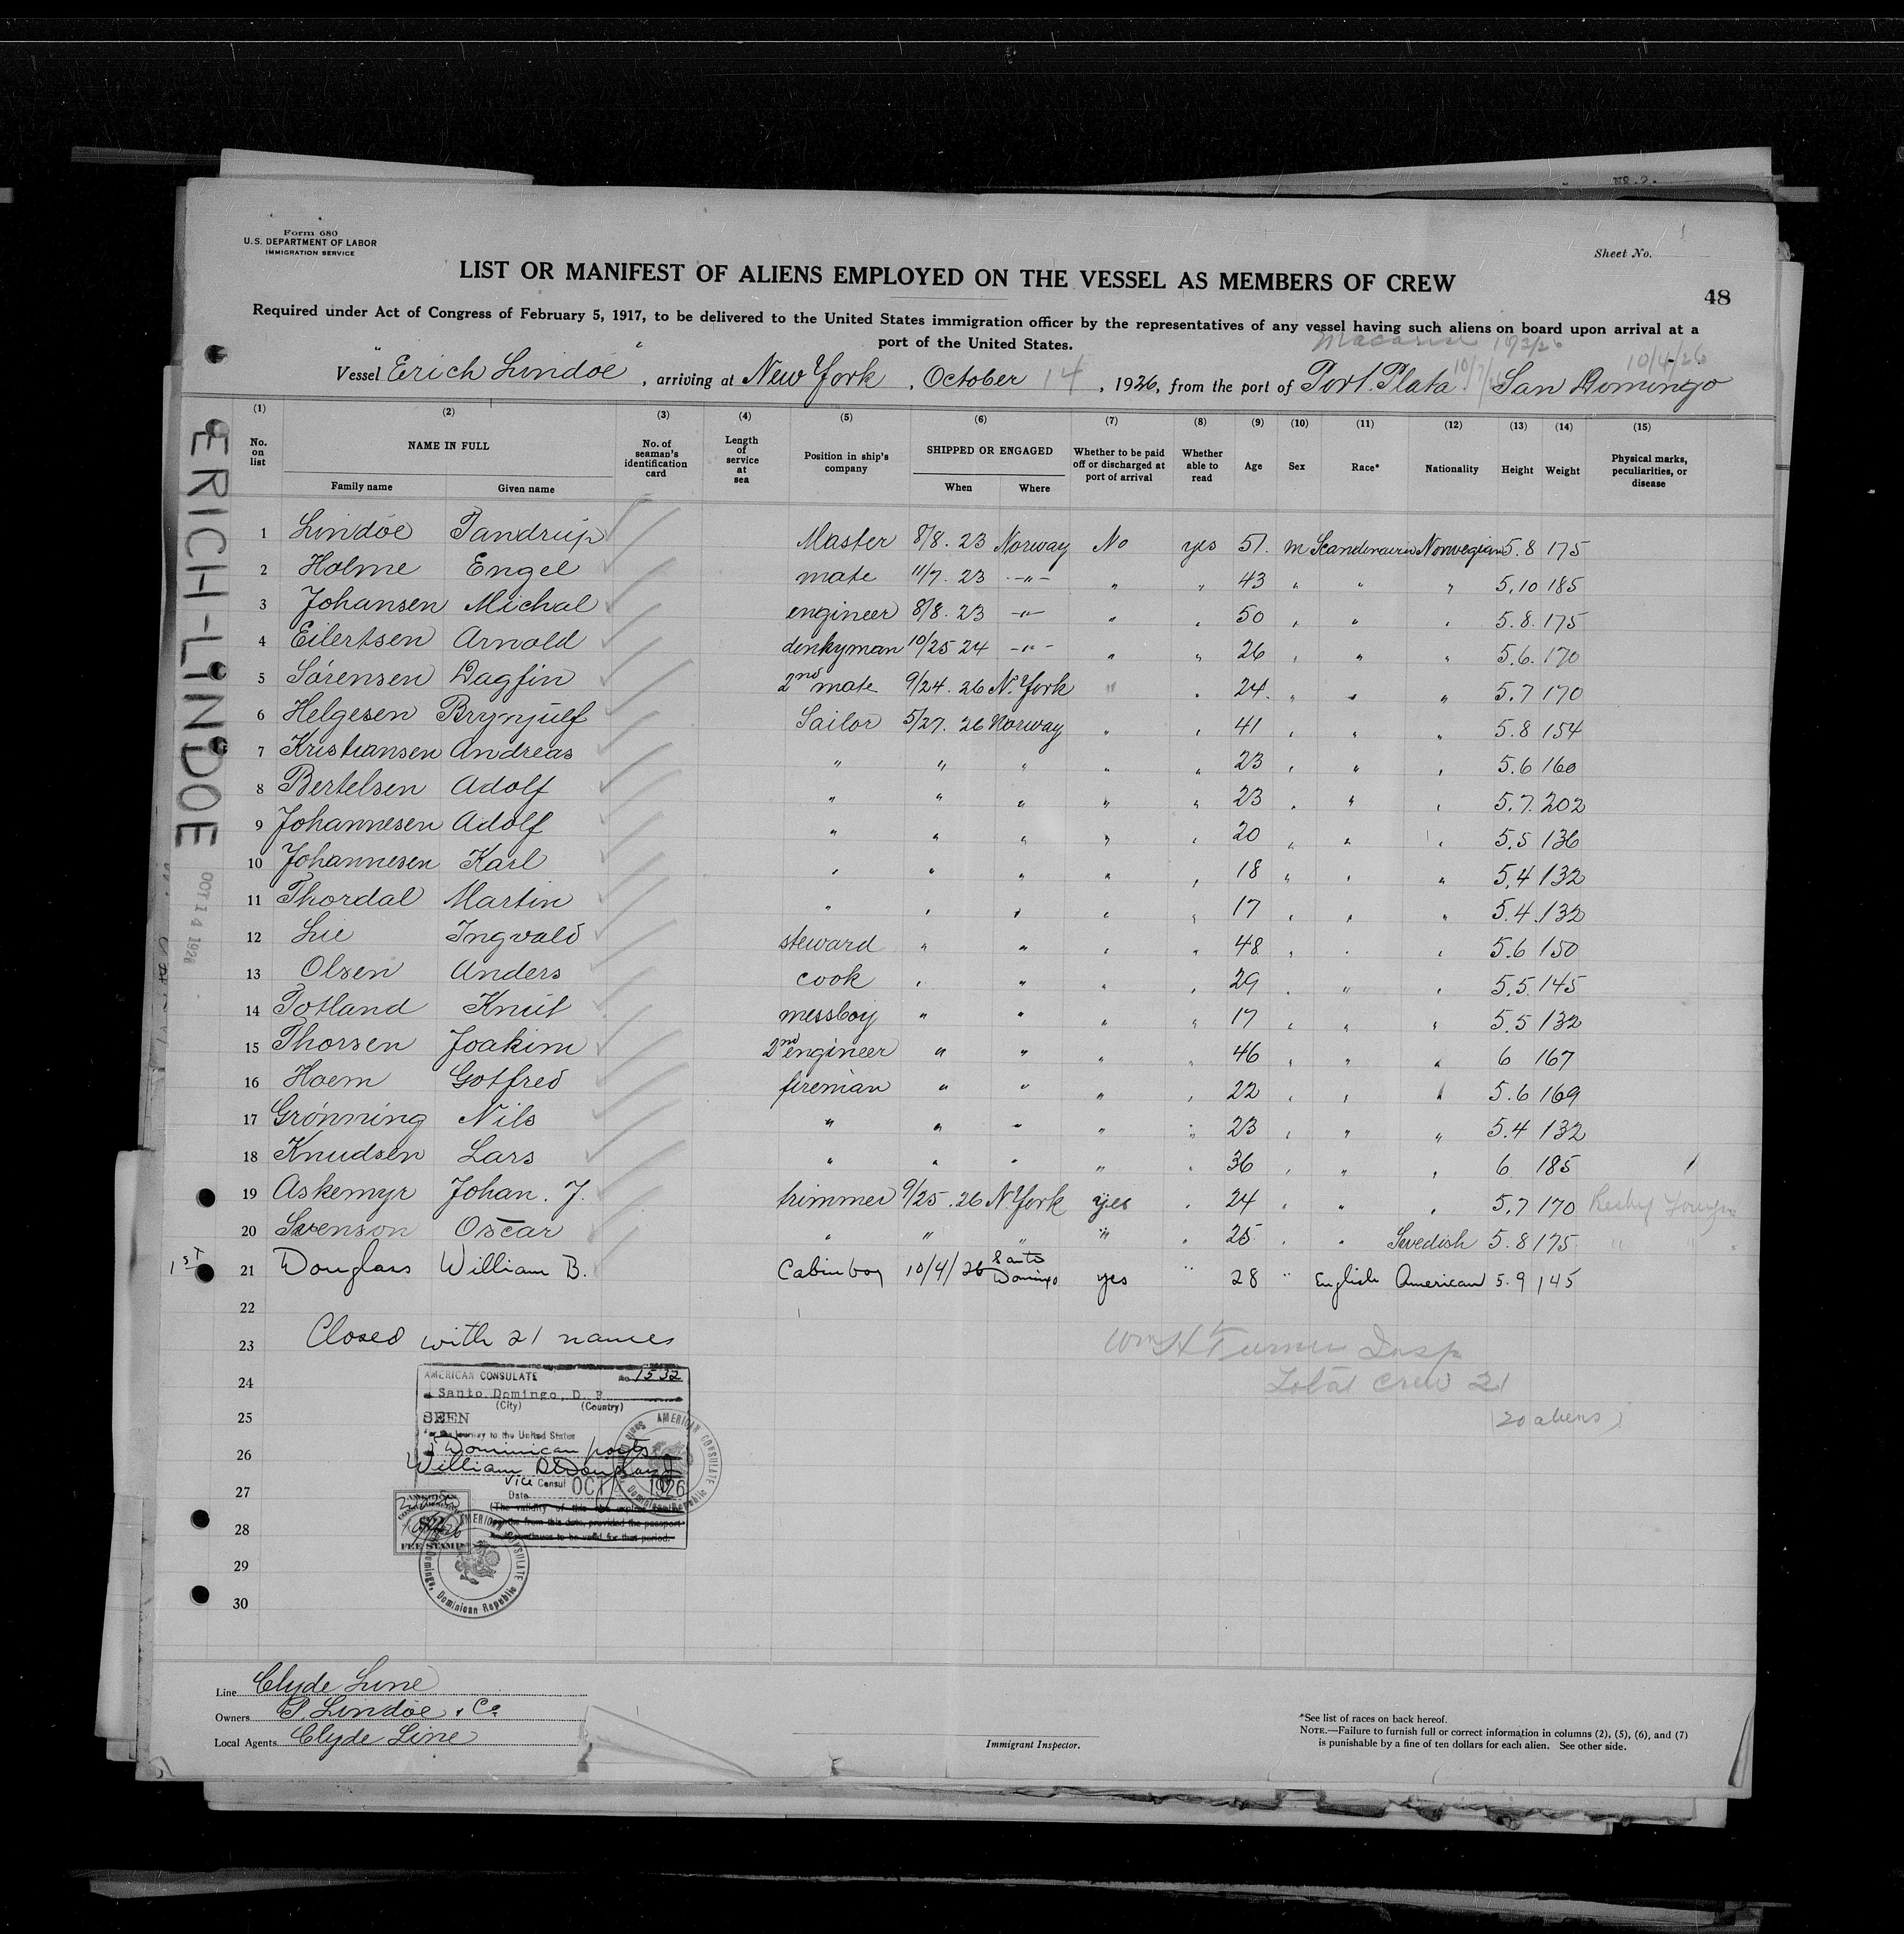 No. 2.
Form 680
U.S. DEPARTMENT OF LABOR
IMMIGRATION SERVICE
Sheet No. 1
LIST OR MANIFEST OF ALIENS EMPLOYED ON THE VESSEL AS MEMBERS OF CREW
48
Required under Act of Congress of February 5, 1917, to be delivered to the United States immigration officer by the representatives of any vessel having such aliens on board upon arrival at a
port of the United States.
10/4/26
Vessel "Erich Lindöe", arriving at New York, October 14, 1926, from the port of Port. Plata San Domingo
ERICH-LINDOE
OCT 14 1926
(1) (2) (3) (4) (5) (6) (7) (8) (9) (10) (11) (12) (13) (14) (15)
No. on list NAME IN FULL No. of seaman's identification card Length of service at sea Position in ship's company SHIPPED OR ENGAGED Whether to be paid off or discharged at port of arrival Whether able to read Age Sex Race* Nationality Height Weight Physical marks, peculiarities, or disease
Family name Given name When Where
1 Lindöe Tandrup Master 8/8. 23 Norway No yes 51. m Scandinavien Norwegian 5.8 175
2 Holme Engel mate 11/7. 23 -"- " " 43 " " " 5.10 185
3 Johansen Michal engineer 8/8. 23 -"- " " 50 " " " 5.8. 175
4 Eilertsen Arnold donkyman 10/25 24 -"- " " 26 " " " 5.6. 170
5 Sörensen Dagfin 2nd mate 9/24. 26 N. York " " 24. " " " 5.7 170
6 Helgesen Brynjulf Sailor 5/27. 26 Norway " " 41 " " " 5.8 154
7 Kristiansen Andreas " " " " " 23 " " " 5.6 160
8 Bertelsen Adolf " " " " " 23 " " " 5.7. 202
9 Johannesen Adolf " " " " " 20 " " " 5.5 136
10 Johannesen Karl " " " " " 18 " " " 5.4 132
11 Thordal Martin " " " " " 17 " " " 5.4. 132
12 Lie Ingvald steward " " " " 48 " " " 5.6 150
13 Olsen Anders cook " " " " 29 " " " 5.5. 145
14 Totland Knut messboy " " " " 17 " " " 5.5 132
15 Thorsen Joakim 2nd engineer " " " " 46 " " " 6 167
16 Hoem Gotfred fireman " " " " 22 " " " 5.6 169
17 Grönning Nils " " " " " 23 " " " 5.4 132
18 Knudsen Lars " " " " " 36 " " " 6 185
19 Askemyr Johan. J. trimmer 9/25. 26 N. York yes " 24 " " " 5.7 170
20 Svenson Oscar " " " " " 25 " " Swedish 5.8 175 " "
1st 21 Douglass William B. Cabinboy 10/4/26 Santo Domingo yes " 28 " English American 5.9 145
22
23 Closed with 21 names
Wm H Turner Insp
24
Total crew 21
25
(20 aliens)
26
27
28
29
30
AMERICAN CONSULATE No. 1532
Santo Domingo, D. R.
(City) (Country)
SEEN
For the journey to the United States
Dominican ports
Vice Consul
Date OCT 1926
(The validity of this visa expires
from this date, provided the passport
continues to be valid for that period.)
AMERICAN CONSULATE
Santo Domingo, Dominican Republic
FEE STAMP
AMERICAN CONSULATE
Santo Domingo, Dominican Republic
Line Clyde Line
Owners P. Lindöe & Co
Local Agents Clyde Line
Immigrant Inspector.
*See list of races on back hereof.
NOTE.—Failure to furnish full or correct information in columns (2), (5), (6), and (7)
is punishable by a fine of ten dollars for each alien. See other side.